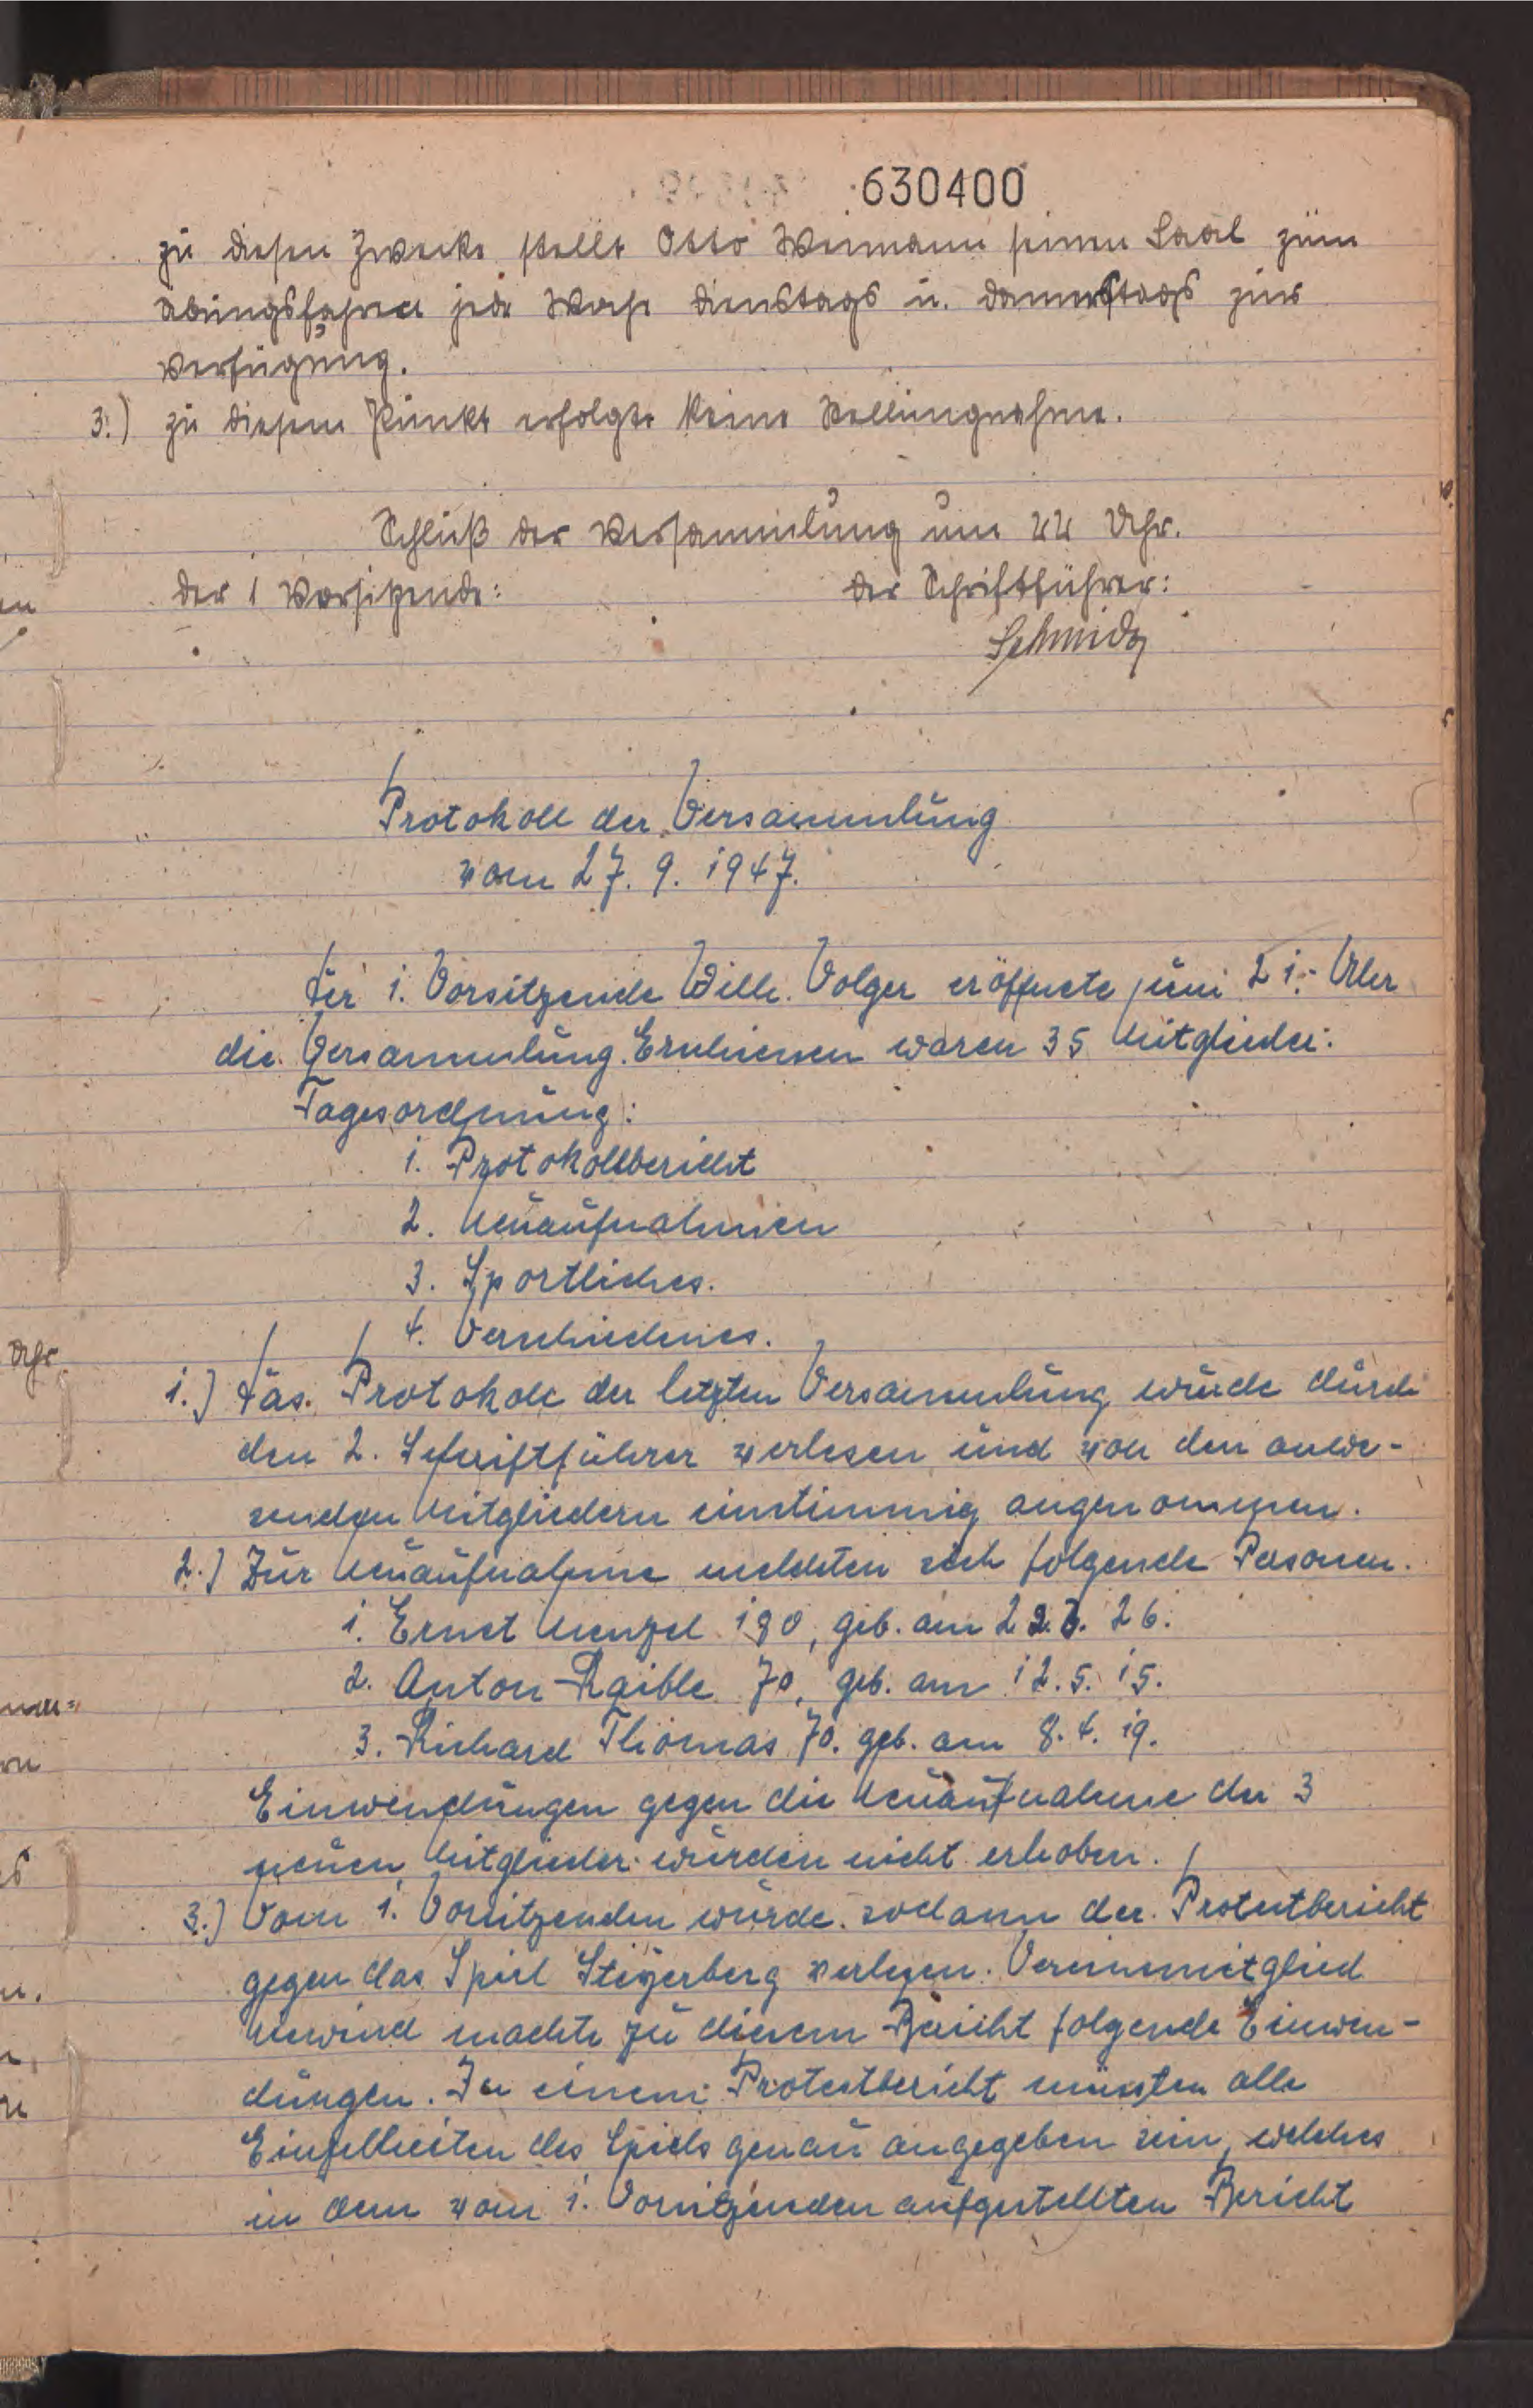 630400
zu diesen Zwecke stellt Otto Weimann seinen Saal zum
Übungsfahren jede Woche Dienstags u. Donnerstags zur
Verfügung.
3.) zu diesem Punkt erfolgte keine Stellungnahme.
Schluß der Versammlung um 22 Uhr.
der 1 Vorsitzende: der Schriftführer:
Schmidt
Protokoll der Versammlung
vom 27. 9. 1947.
Der 1. Vorsitzende Wilh. Volger eröffnete um 21.- Uhr
die Versammlung. Erschienen waren 35 Mitglieder.
Tagesordnung:
1. Protokollbericht
2. Neuaufnahmen
3. Sportliches.
4. Verschiedenes.
1.) Das Protokoll der letzten Versammlung wurde durch
den 2. Schriftführer verlesen und von den anwe-
senden Mitgliedern einstimmig angenommen.
2.) Zur Neuaufnahme meldeten sich folgende Personen.
1. Ernst Menzel 180, geb. am 26.
2. Anton Raible 70, geb. am 12. 5. 15.
3. Richard Thomas 70. geb. am 8. 4. 19.
Einwendungen gegen die Neuaufnahme der 3
neuen Mitglieder wurden nicht erhoben.
3.) Vom 1. Vorsitzenden wurde sodann der Protestbericht
gegen das Spiel Steyerberg verlesen. Vereinsmitglied
machte zu diesem Bericht folgende Einwen-
dungen. In einem Protestbericht müssten alle
Einzelheiten des Spiels genau angegeben sein, welches
in dem vom 1. Vorsitzenden aufgestellten Bericht
Uhr